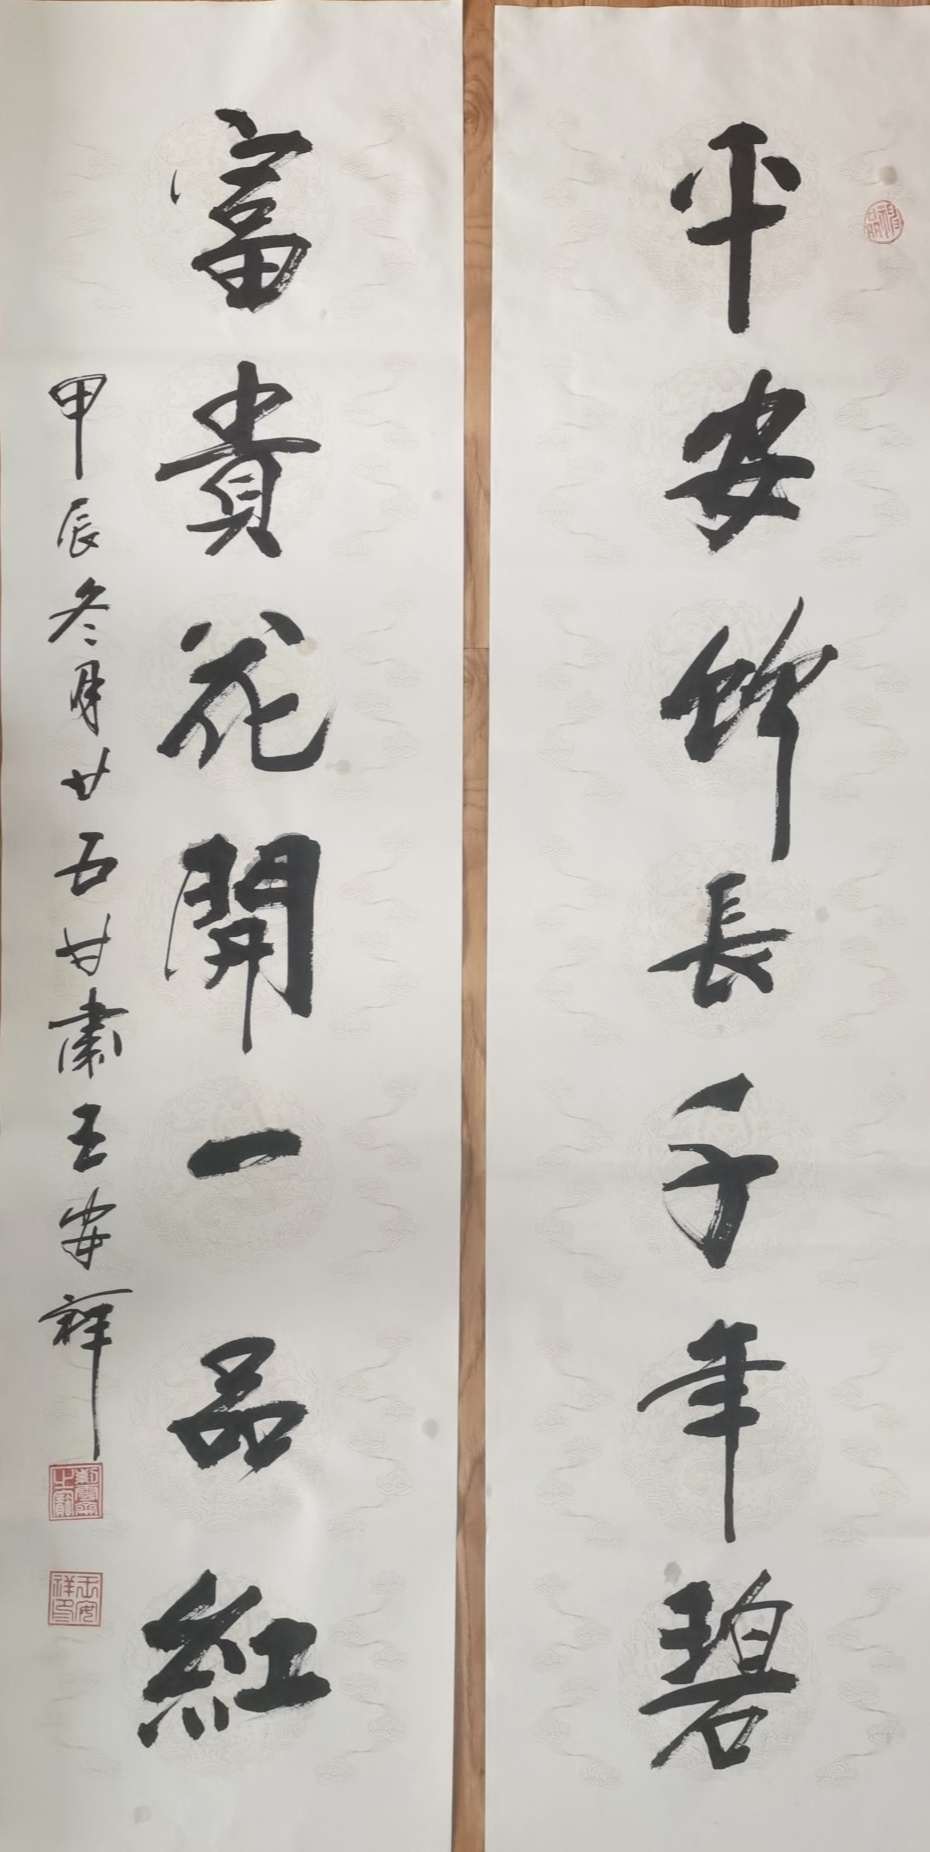 平安竹長千年碧
富貴花開一品紅
甲辰冬月廿五甘肅王安祥
王安祥印